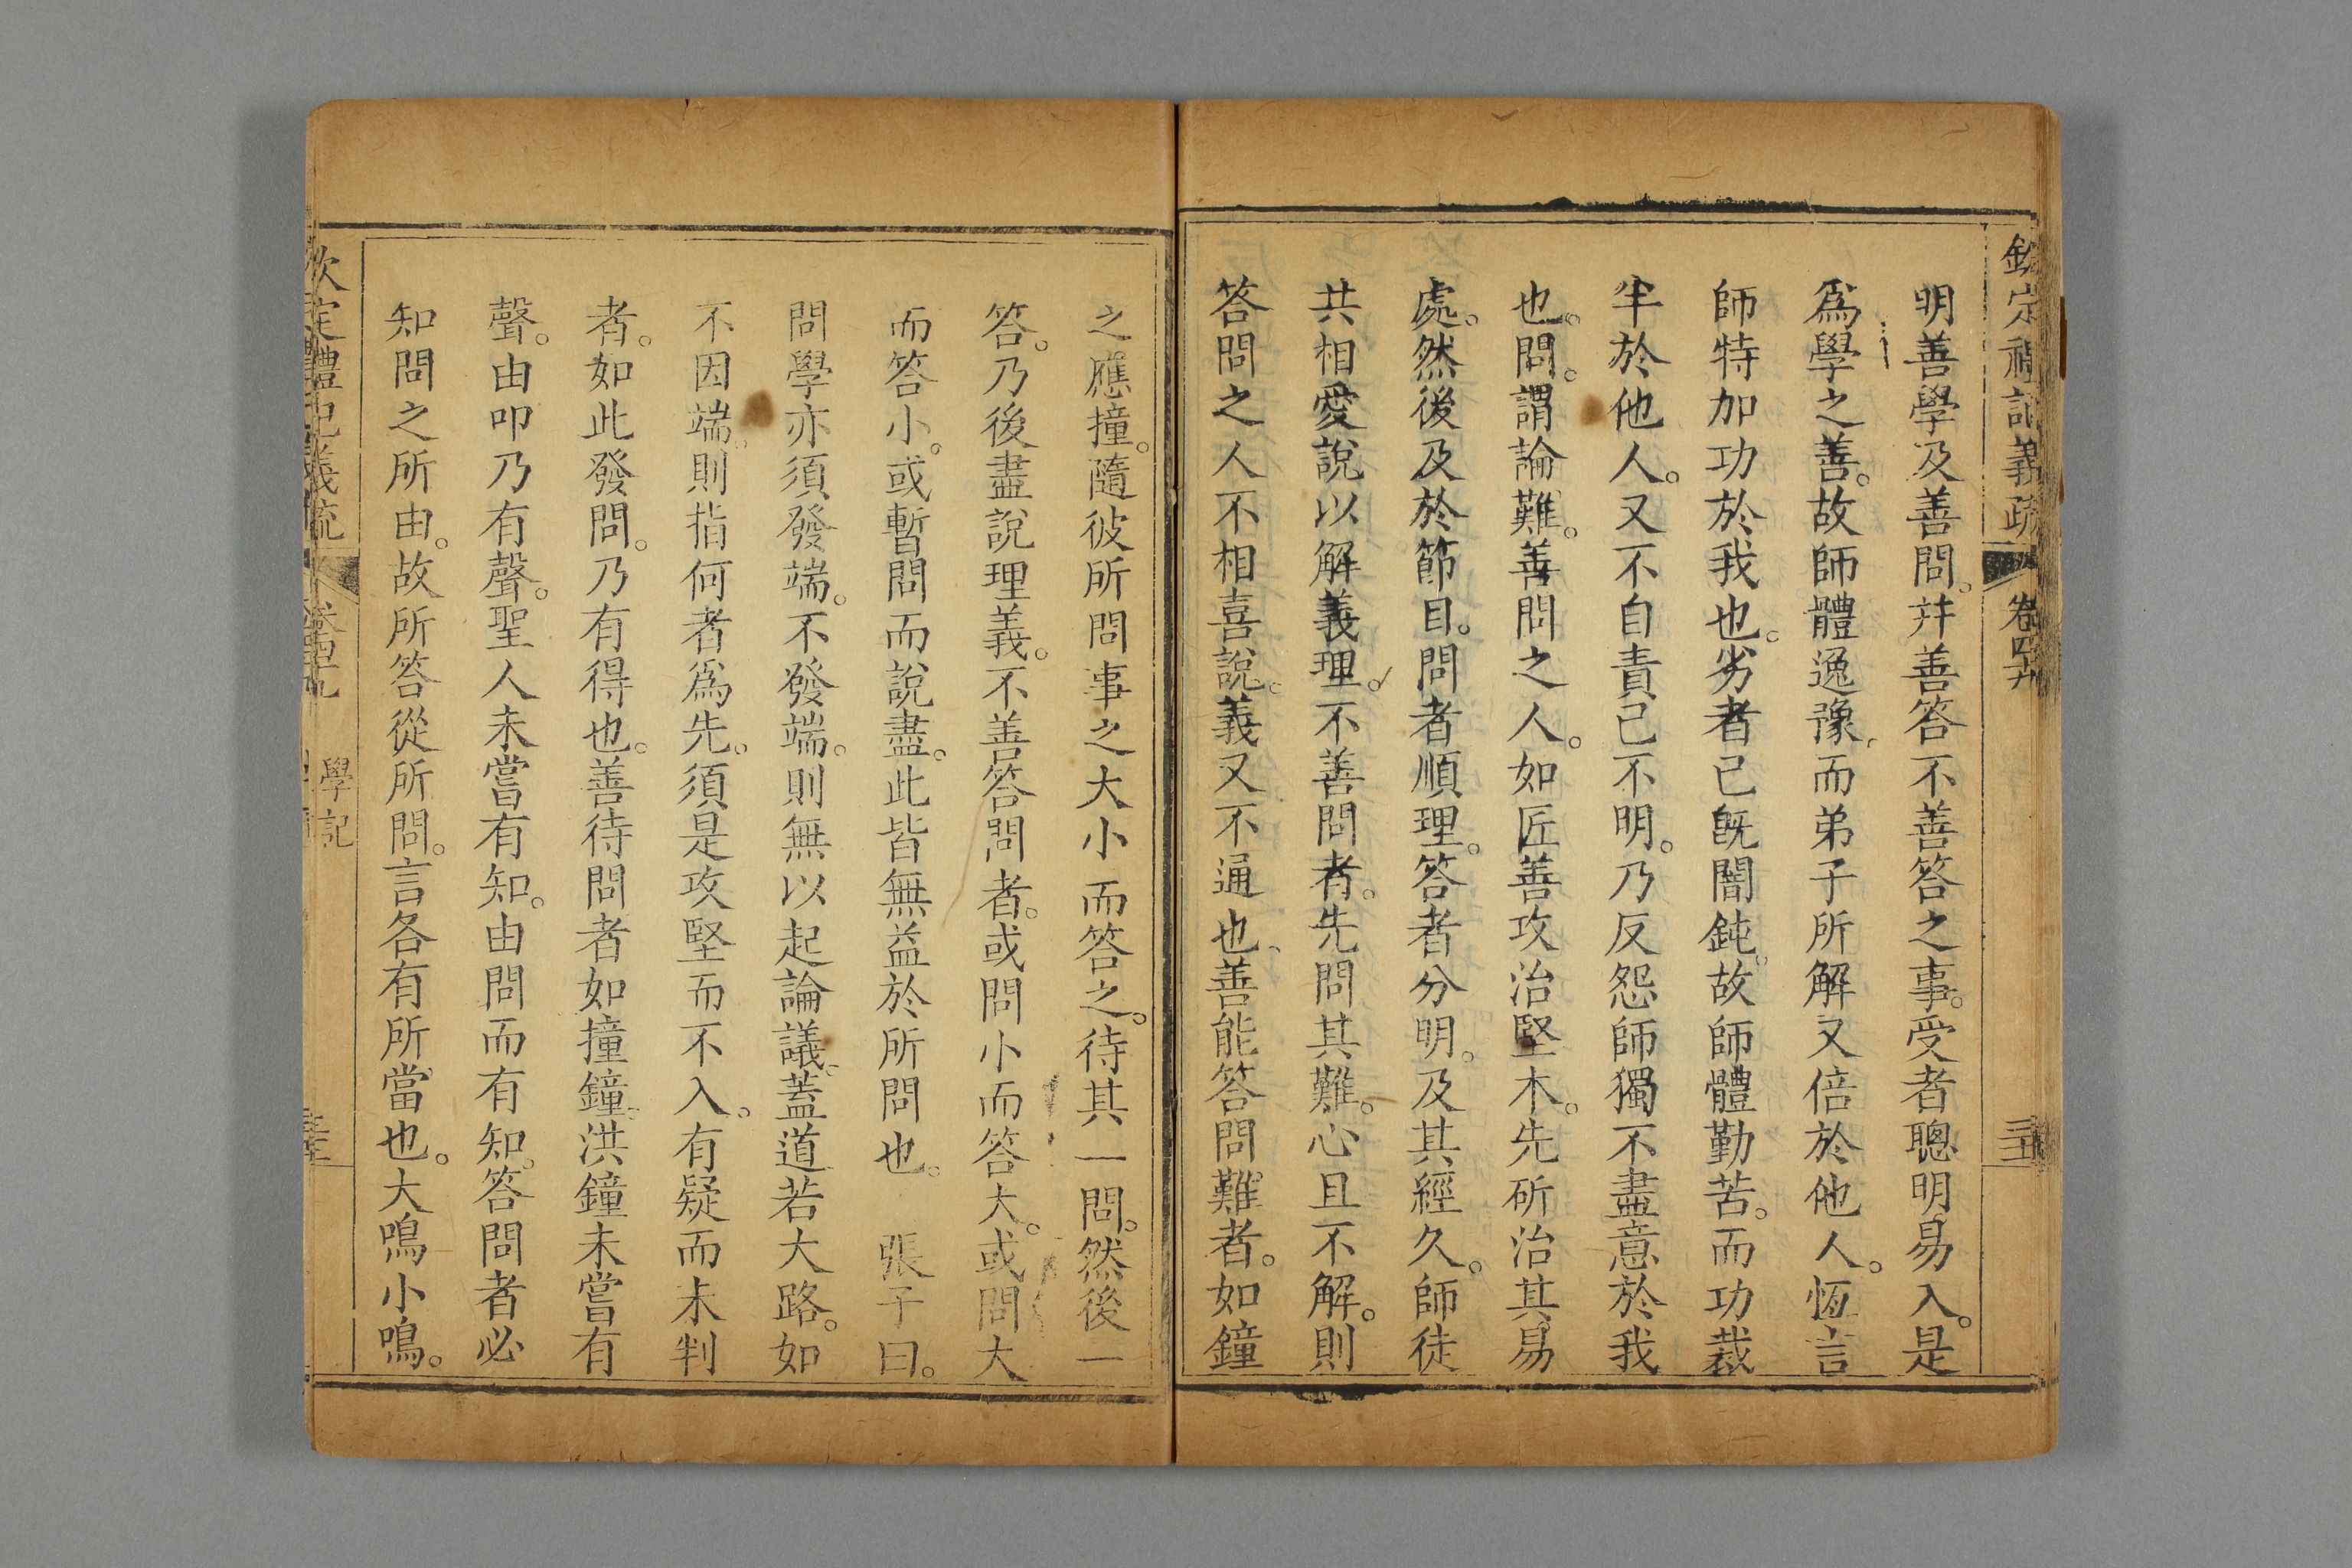 欽定禮記義疏 卷四十九
明善學及善問。幷善答不善答之事。受者聰明易入。是
爲學之善。故師體逸豫。而弟子所解又倍於他人。恆言
師特加功於我也。劣者己旣闇鈍。故師體勤苦。而功裁
半於他人。又不自責己不明。乃反怨師獨不盡意於我
也。問。謂論難。善問之人。如匠善攻治堅木。先斫治其易
處。然後及於節目。問者順理。答者分明。及其經久。師徒
共相愛說以解義理。不善問者。先問其難。心且不解。則
答問之人不相喜說。義又不通也。善能答問難者。如鐘
之應撞。隨彼所問事之大小而答之。待其一問。然後一
答。乃後盡說理義。不善答問者。或問小而答大。或問大
而答小。或暫問而說盡。此皆無益於所問也。 張子曰。
問學亦須發端。不發端。則無以起論議。蓋道若大路。如
不因端。則指何者爲先。須是攻堅而不入。有疑而未判
者。如此發問。乃有得也。善待問者如撞鐘。洪鐘未嘗有
聲。由叩乃有聲。聖人未嘗有知。由問而有知。答問者必
知問之所由。故所答從所問。言各有所當也。大鳴小鳴。
欽定禮記義疏 學記